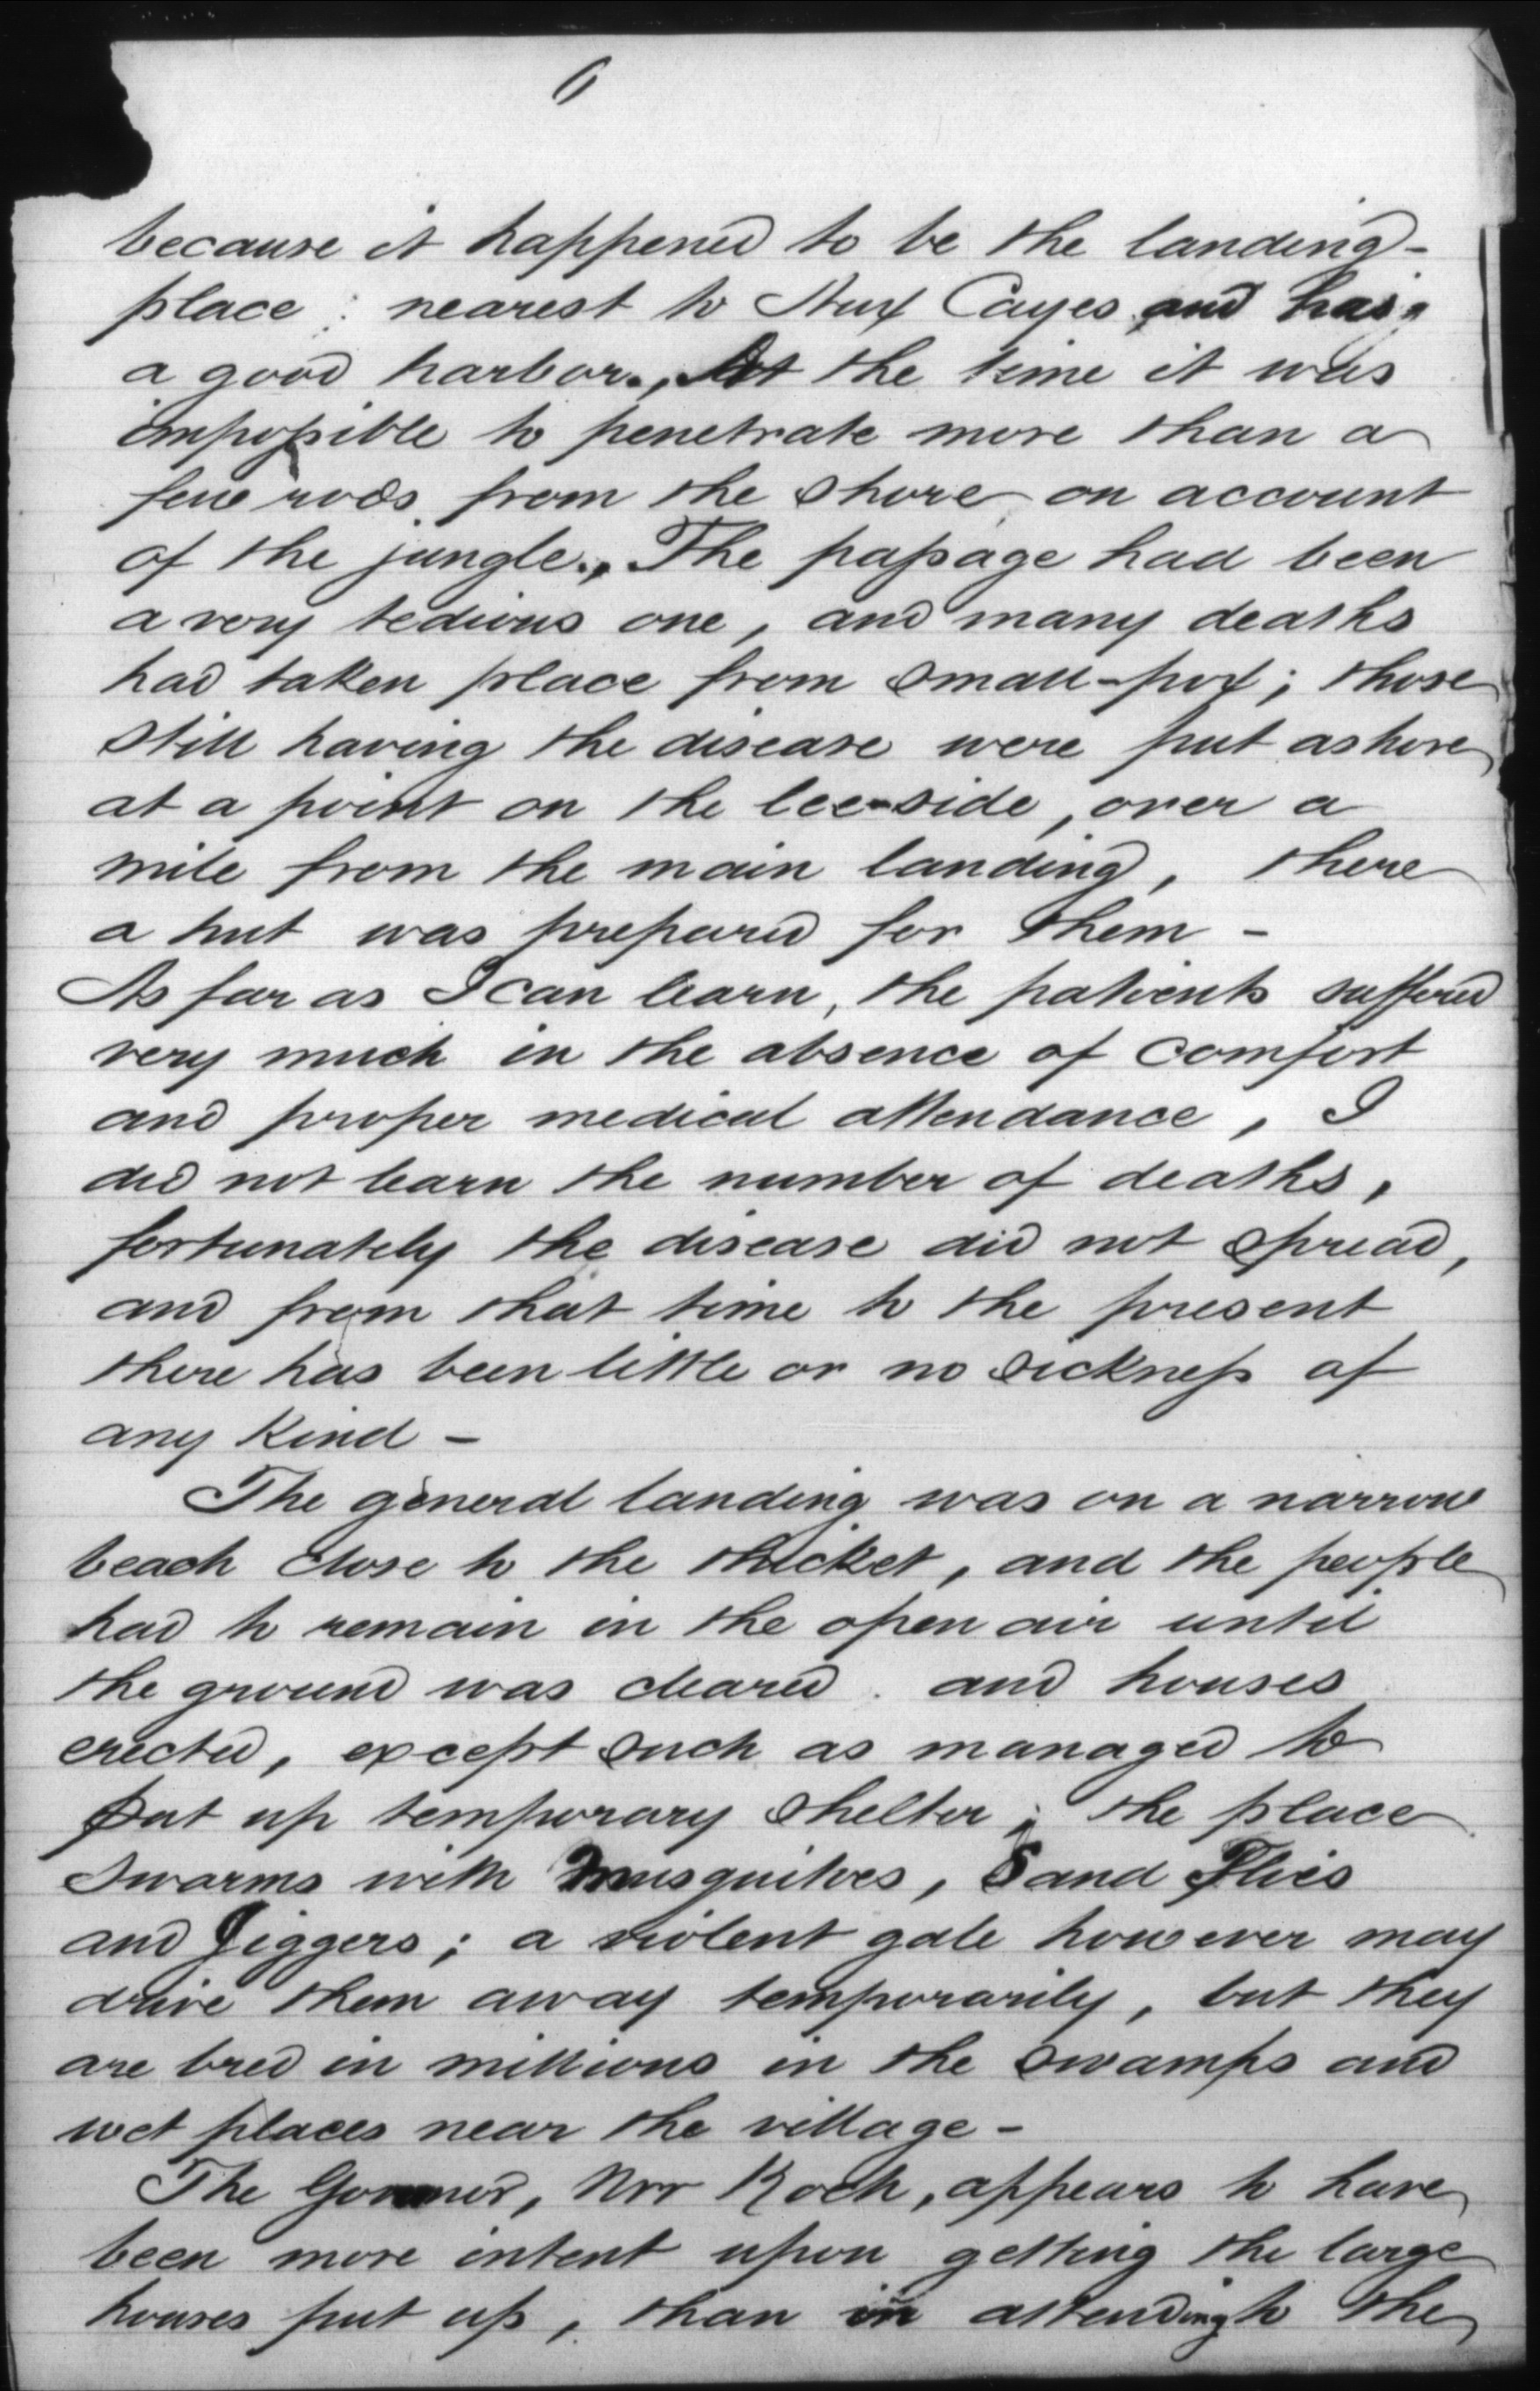 6
because it happened to be the landing-
place : nearest to Aux Cayes and has
a good harbor., At the time it was
impossible to penetrate more than a
few rods from the shore on account
of the jungle., The passage had been
a very tedious one, and many deaths
had taken place from small-pox; those
still having the disease were put ashore
at a point on the lee-side, over a
mile from the main landing, there
a hut was prepared for them -
As far as I can learn, the patients suffered
very much in the absence of comfort
and proper medical attendance, I
did not learn the number of deaths,
fortunately the disease did not spread,
and from that time to the present
there has been little or no sickness of
any kind -
The general landing was on a narrow
beach close to the thicket, and the people
had to remain in the open air until
the ground was cleared. and houses
erected, except such as managed to
put up temporary shelter; the place
swarms with Musquitoes, Sand Flies
and Jiggers; a violent gale however may
drive them away temporarily, but they
are bred in millions in the swamps and
wet places near the village -
The Governor, Mr Kock, appears to have
been more intent upon getting the large
houses put up, than in attending to the